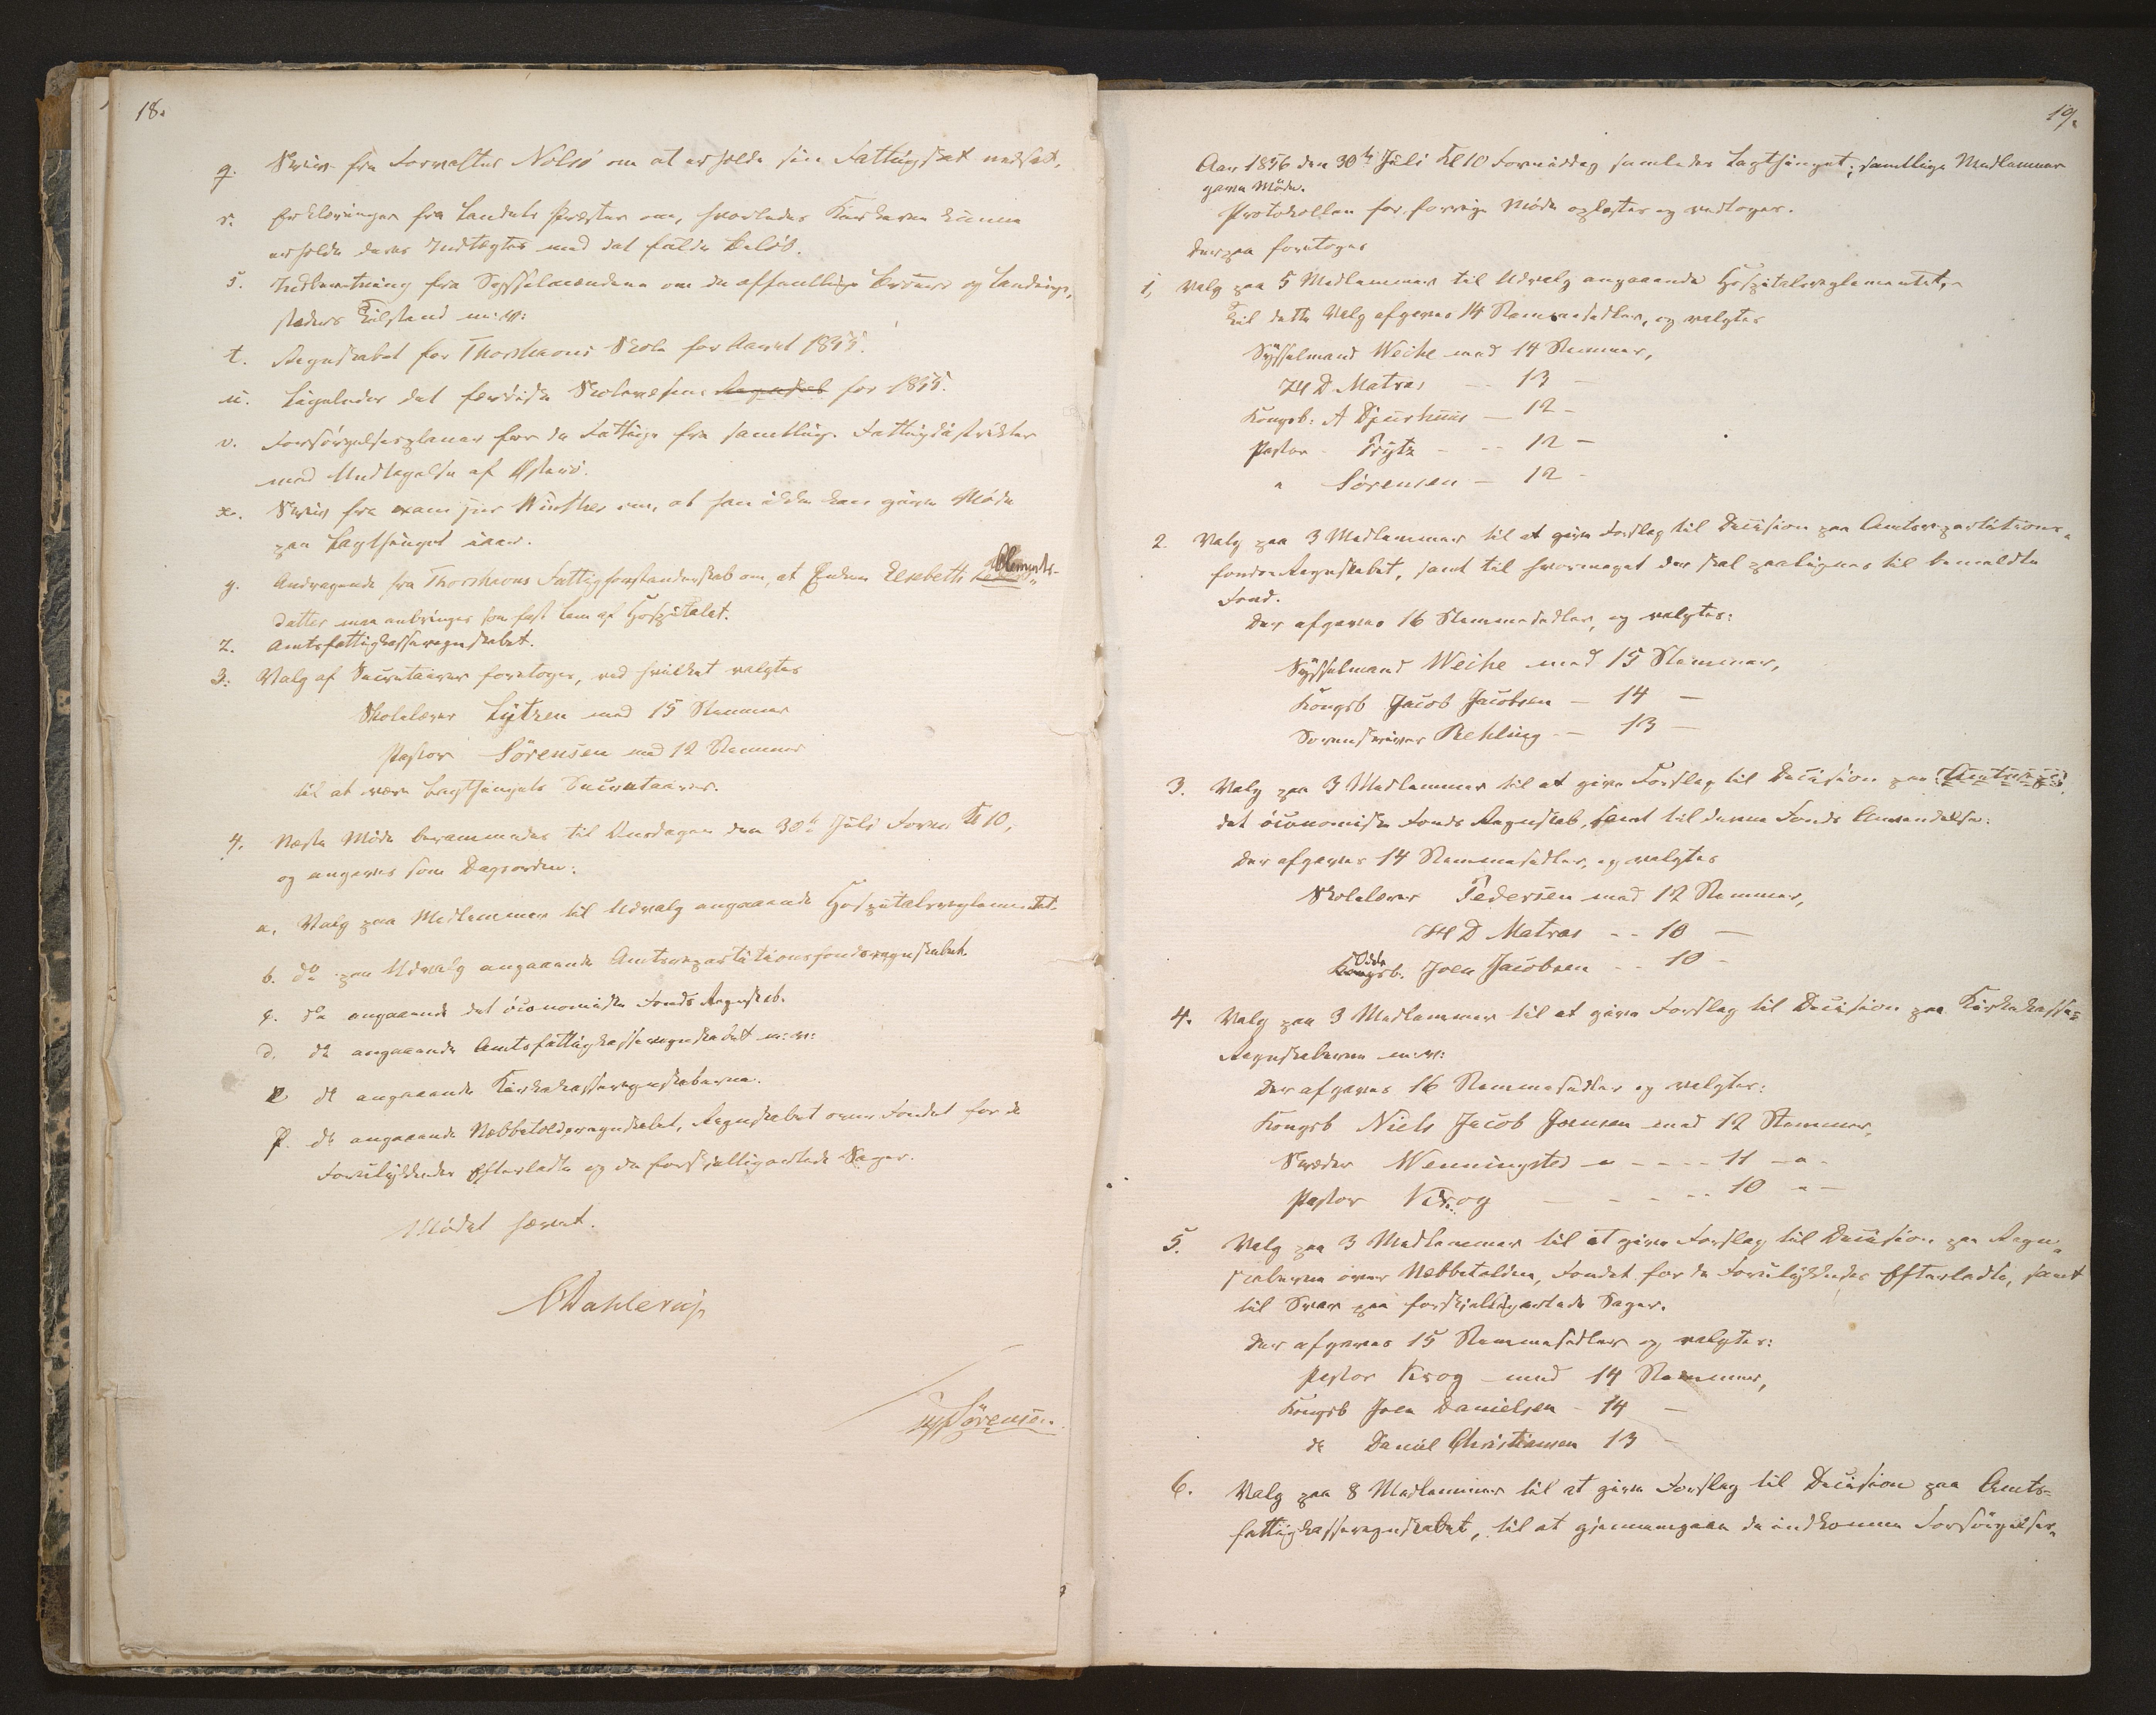 18.
q. Skriv. fra Forvalter Nolsø om at erholde sin Fattigskat nedsat.
r. Erklæringer fra Landets Præster om, hvorledes Kirkerne kunne
erholde deres Indtægter med det fulde Beløb.
s. Indberetning fra Sysselmændene om de offentlige Brønde og Landings-
steders Tilstand m:v:
t. Regnskabet for Thorshavns Skole for Aaret 1855.
u. Ligeledes det færøiske Skolevæsens Regnskab for 1855.
v. Forsörgelsesplaner for de Fattige fra samtlige Fattigdistrikter
med Undtagelse af Østerø.
x. Skriv fra exam jur Winther om, at han ikke kan give Møde
paa Lagthinget iaar.
y. Andragende fra Thorshavns Fattigforstanderskab om, at Enken Elsebeth Clements-
datter maa anbringes som fast Lem af Hospitalet.
z. Amtsfattigkasseregnskabet.
3. Valg af Secretairer foretoges, ved hvilket valgtes
Skolelærer Lützen med 15 Stemmer
Pastor Sörensen med 12 Stemmer
til at være Lagthingets Secretairer.
4. Næste Møde berammedes til Onsdagen den 30te Juli Form. Kl 10,
og angaves som Dagsorden:
a. Valg paa Medlemmer til Udvalg angaaende Hospitalsreglementet.
b. do paa Udvalg angaaende Amtsrepartitionsfondsregnskabet.
c. do angaaende det öconomiske Fonds Regnskab.
d. do angaaende Amtsfattigkasseregnskabet m:v:
e do angaaende Kirkekasseregnskaberne.
f. do angaaende Næbbetoldsregnskabet, Regnskabet over Fondet for de
Forulykkedes Efterladte og de forskjelligartede Sager.
Mödet hævet.
CDahlerup
Sörensen
19.
Aar 1856 den 30te Juli Kl 10 Formiddag samledes Lagthinget; samtlige Medlemmer
gave Möde.
Protokollen for forrige Möde oplæstes og vedtoges.
Derpaa foretoges
1, Valg paa 5 Medlemmer til Udvalg angaaende Hospitalsreglementet.
Til dette Valg afgaves 14 Stemmesedler, og valgtes
Sysselmand Weihe med 14 Stemmer,
HD Matras -- 13 -
Kongsb: A Djurhuus - 12 -
Pastor Prytz - -- 12 -
" Sörensen - 12 -
2. Valg paa 3 Medlemmer til at give Forslag til Decision paa Amtsrepartitions-
fonds Regnskabet, samt til hvormeget der skal paalignes til bemeldte
Fond.
Der afgaves 16 Stemmesedler, og valgtes:
Sysselmand Weihe med 15 Stemmer,
Kongsb Jacob Jacobsen - 14 -
Sorenskriver Rehling - 13 -
3. Valg paa 3 Medlemmer til at give Forslag til Decision paa
det öconomiske Fonds Regnskab, samt til denne Fonds Anvendelse.
Der afgaves 14 Stemmesedler, og valgtes
Skolelærer Pedersen med 12 Stemmer,
HD Matras -- 10 -
Odels Kongsb. Joen Jacobsen -- 10 -
4. Valg paa 3 Medlemmer til at give Forslag til Decision paa Kirkekasse=
Regnskaberne m:v:
Der afgaves 16 Stemmesedler og valgtes:
Kongsb Niels Jacob Joensen med 12 Stemmer,
Skræder Wenningsted " - - - - 11 - " -
Pastor Krog - - - -- 10 " -
5. Valg paa 3 Medlemmer til at give Forslag til Decision paa Regn-
skaberne over Næbbetolden, Fondet for de Forulykkedes Efterladte, samt
til Svar paa forskjelligartede Sager.
Der afgaves 15 Stemmesedler og valgtes:
Pastor Krog med 14 Stemmer,
Kongsb Joen Danielsen - 14 -
do Daniel Christiansen 13 -
6. Valg paa 8 Medlemmer til at give Forslag til Decision paa Amts-
fattigkasseregnskabet, til at gjennemgaae de indkomne Forsörgelses-